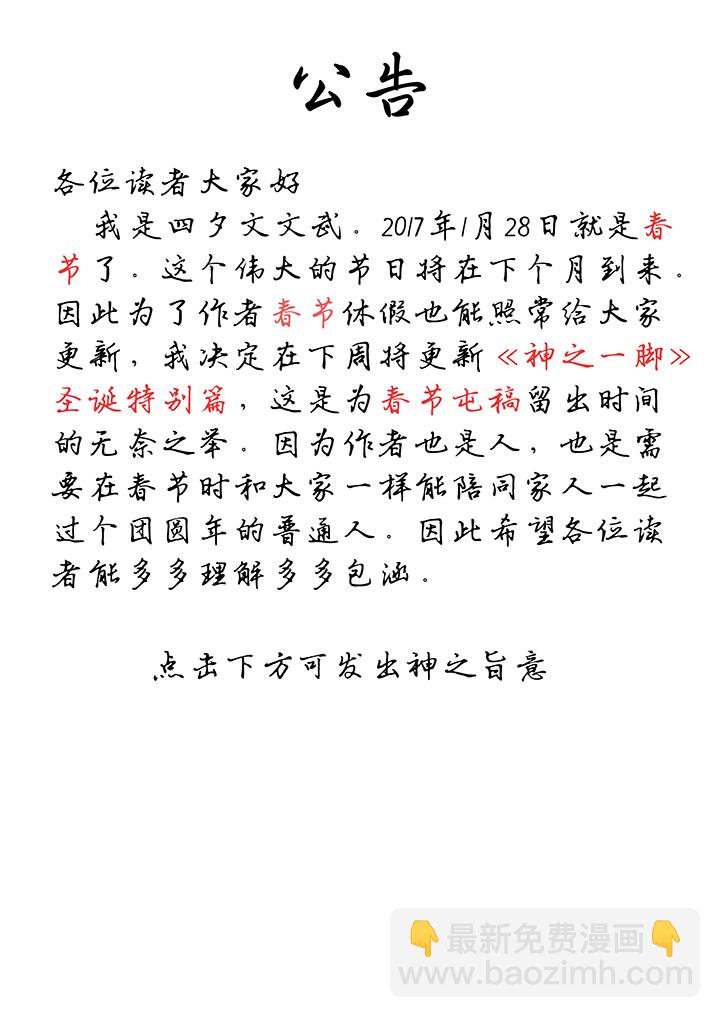 公告
各位读者大家好
我是四夕文文武。2017年1月28日就是春
节了。这个伟大的节日将在下个月到来。
因此为了作者春节休假也能照常给大家
更新，我决定在下周将更新《神之一脚》
圣诞特别篇，这是为春节屯稿留出时间
的无奈之举。因为作者也是人，也是需
要在春节时和大家一样能陪同家人一起
过个团圆年的普通人。因此希望各位读
者能多多理解多多包涵。
点击下方可发出神之旨意
👇最新免费漫画👇
www.baozimh.com